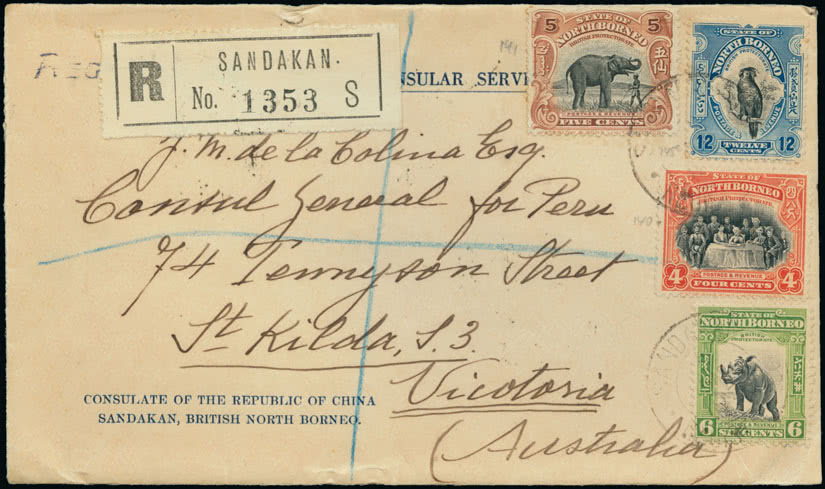 REG
R
SANDAKAN.
No. 1353 S
NSULAR SERVI
J. M. de la Colina Esq.
Consul General for Peru
74 Tennyson Street
St Kilda, S.3.
Vicotoria
(Australia)
CONSULATE OF THE REPUBLIC OF CHINA
SANDAKAN, BRITISH NORTH BORNEO.
5 STATE OF 5
NORTH BORNEO
BRITISH PROTECTORATE
POSTAGE & REVENUE
FIVE CENTS
STATE OF
NORTH BORNEO
12 TWELVE 12
CENTS
STATE OF
NORTH BORNEO
BRITISH PROTECTORATE
POSTAGE & REVENUE
4 FOUR CENTS 4
STATE OF
NORTH BORNEO
BRITISH
PROTECTORATE
POSTAGE & REVENUE
6 SIX CENTS 6
SANDA